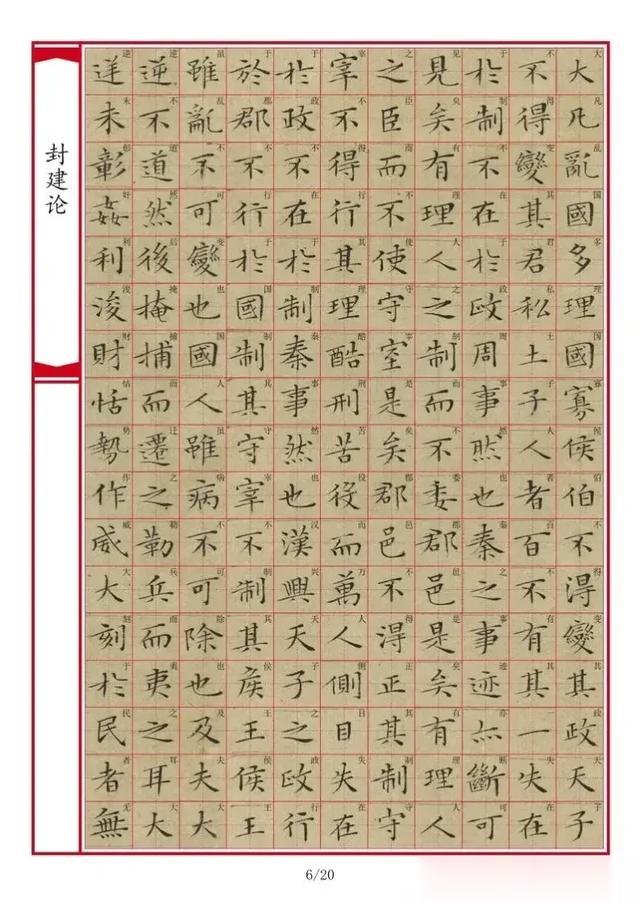 大凡亂國多理國寡侯伯不得變其政天子
不得變其君私土子人者百不有其一失在
於制不在於政周事然也秦之事迹亦斷可
見矣有理人之制而不委郡邑是矣有理人
之臣而不使守宰是矣郡邑不得正其制守
宰不得行其理酷刑苦役而萬人側目失在
於政不在於制秦事然也漢興天子之政行
於郡不行於國制其守宰不制其侯王侯王
雖亂不可變也國人雖病不可除也及夫大
逆不道然後掩捕而遷之勒兵而夷之耳大
逆未彰姦利浚財怙勢作威大刻於民者無
封建论
6/20